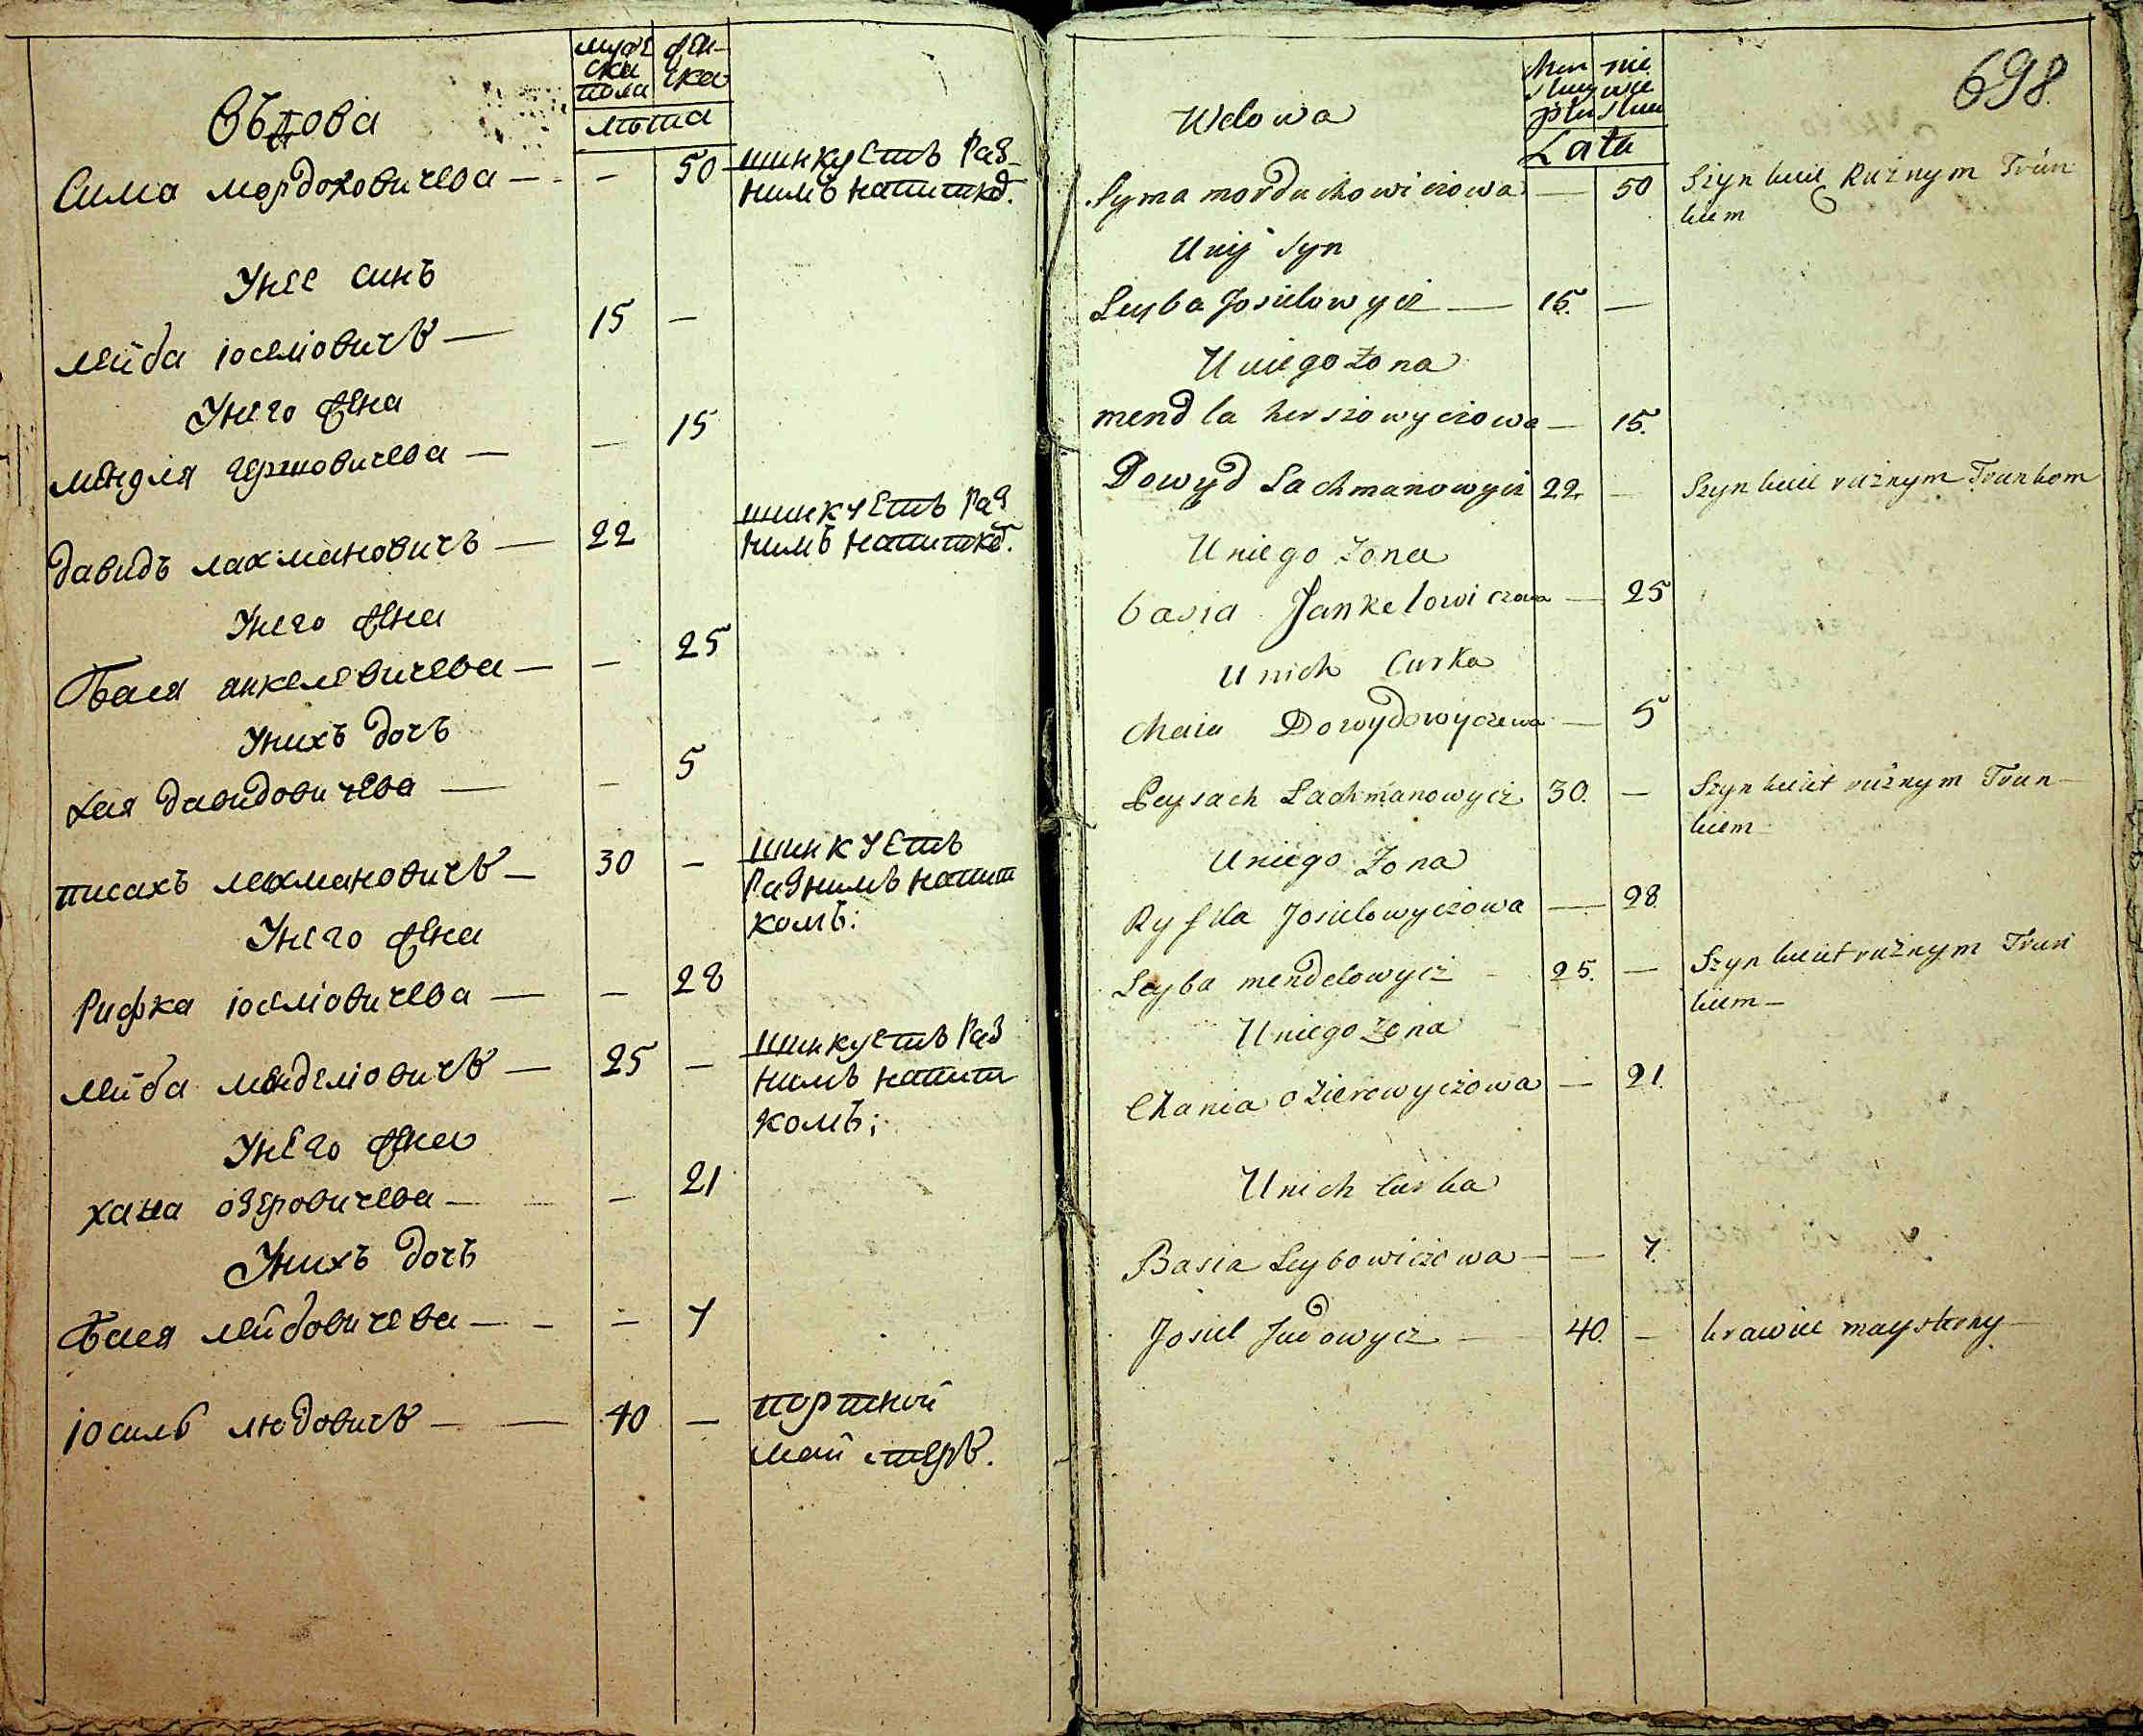 муже
ска
пола
жен
ска
лѣта
Вѣдова
Сима мордоховичева — — 50 шинкуетъ Раз
нимъ напитко̃.
Унее синъ
лейба іосѣліовичъ — 15 —
Унего жена
мѣндля гершовичева — — 15
давидъ лахмановичъ — 22 шинкуетъ Раз
нимъ напитко̃.
Унего жена
Бася анкелевичева — — 25
Унихъ дочъ
хая давидовичева — — 5
писахъ лахмановичъ — 30 — шинкуетъ
Разнимъ напит
комъ:
Унего жена
Рифка іосѣліовичева — — 28
лейба мѣнделіовичъ — 25 — шинкуетъ Раз
нимъ напит
комъ;
Унего жена
хана озеровичева — — 21
Унихъ дочъ
Бася лейбовичева — — 7
іосиль людовичъ — 40 — портной
май стеръ.
698.
Wdowa
Lata
Syma morduchowiczowa — 50 Szynkuie Rużnym Trun
kiem
Unij syn
Leyba Josielowycz — 15. —
Uniego żona
mendla herszowyczowa — 15.
Dowyd Lachmanowycz 22. — Szynkuie rużnym Trunkom
Uniego żona
basia Jankelowiczowa — 25
Unich Curka
chaia Dowydowyczewa — 5
Peysach Lachmanowycz 30. — Szynkuiet rużnym Trun
kiem —
Uniego Żona
Ryfka Josielowyczowa — 28.
Leyba mendelowycz 25. — Szynkuiet rużnym Trun
kiem —
Uniego żona
Chania ozierowyczowa — 21.
Unich curka
Basia Leybowiczowa — — 7.
Josiel Judowycz — 40. — krawiec maysterny